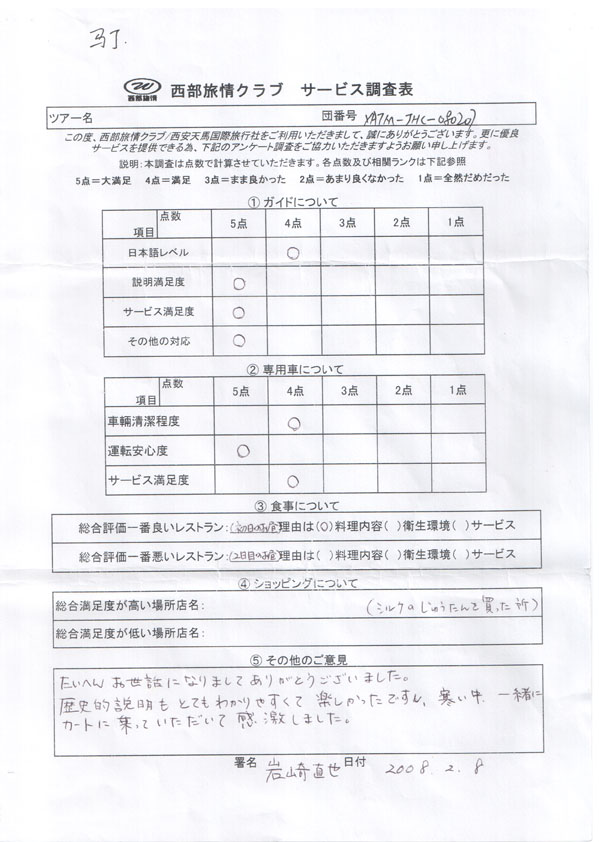 馬丁.
西部旅情
西部旅情クラブ サービス調査表
ツアー名 団番号 XATM-JHC-080207
この度、西部旅情クラブ/西安天馬国際旅行社をご利用いただきまして、誠にありがとうございます。更に優良
サービスを提供できる為、下記のアンケート調査をご協力いただきますようお願い申し上げます。
説明:本調査は点数で計算させていただきます。各点数及び相関ランクは下記参照
5点=大満足 4点=満足 3点=まま良かった 2点=あまり良くなかった 1点=全然だめだった
① ガイドについて
点数 項目 5点 4点 3点 2点 1点
日本語レベル ○
説明満足度 ○
サービス満足度 ○
その他の対応 ○
② 専用車について
点数 項目 5点 4点 3点 2点 1点
車輛清潔程度 ○
運転安心度 ○
サービス満足度 ○
③ 食事について
総合評価一番良いレストラン:(初日のお昼)理由は(○)料理内容( )衛生環境( )サービス
総合評価一番悪いレストラン:(2日目のお昼)理由は( )料理内容( )衛生環境( )サービス
④ ショッピングについて
総合満足度が高い場所店名: (シルクのじゅうたんを買った所)
総合満足度が低い場所店名:
⑤ その他のご意見
たいへん お世話になりまして ありがとうございました。
歴史的説明も とてもわかりやすくて 楽しかったですし、寒い中、一緒に
カートに乗っていただいて 感激しました。
署名 岩崎直也 日付 2008.2.8